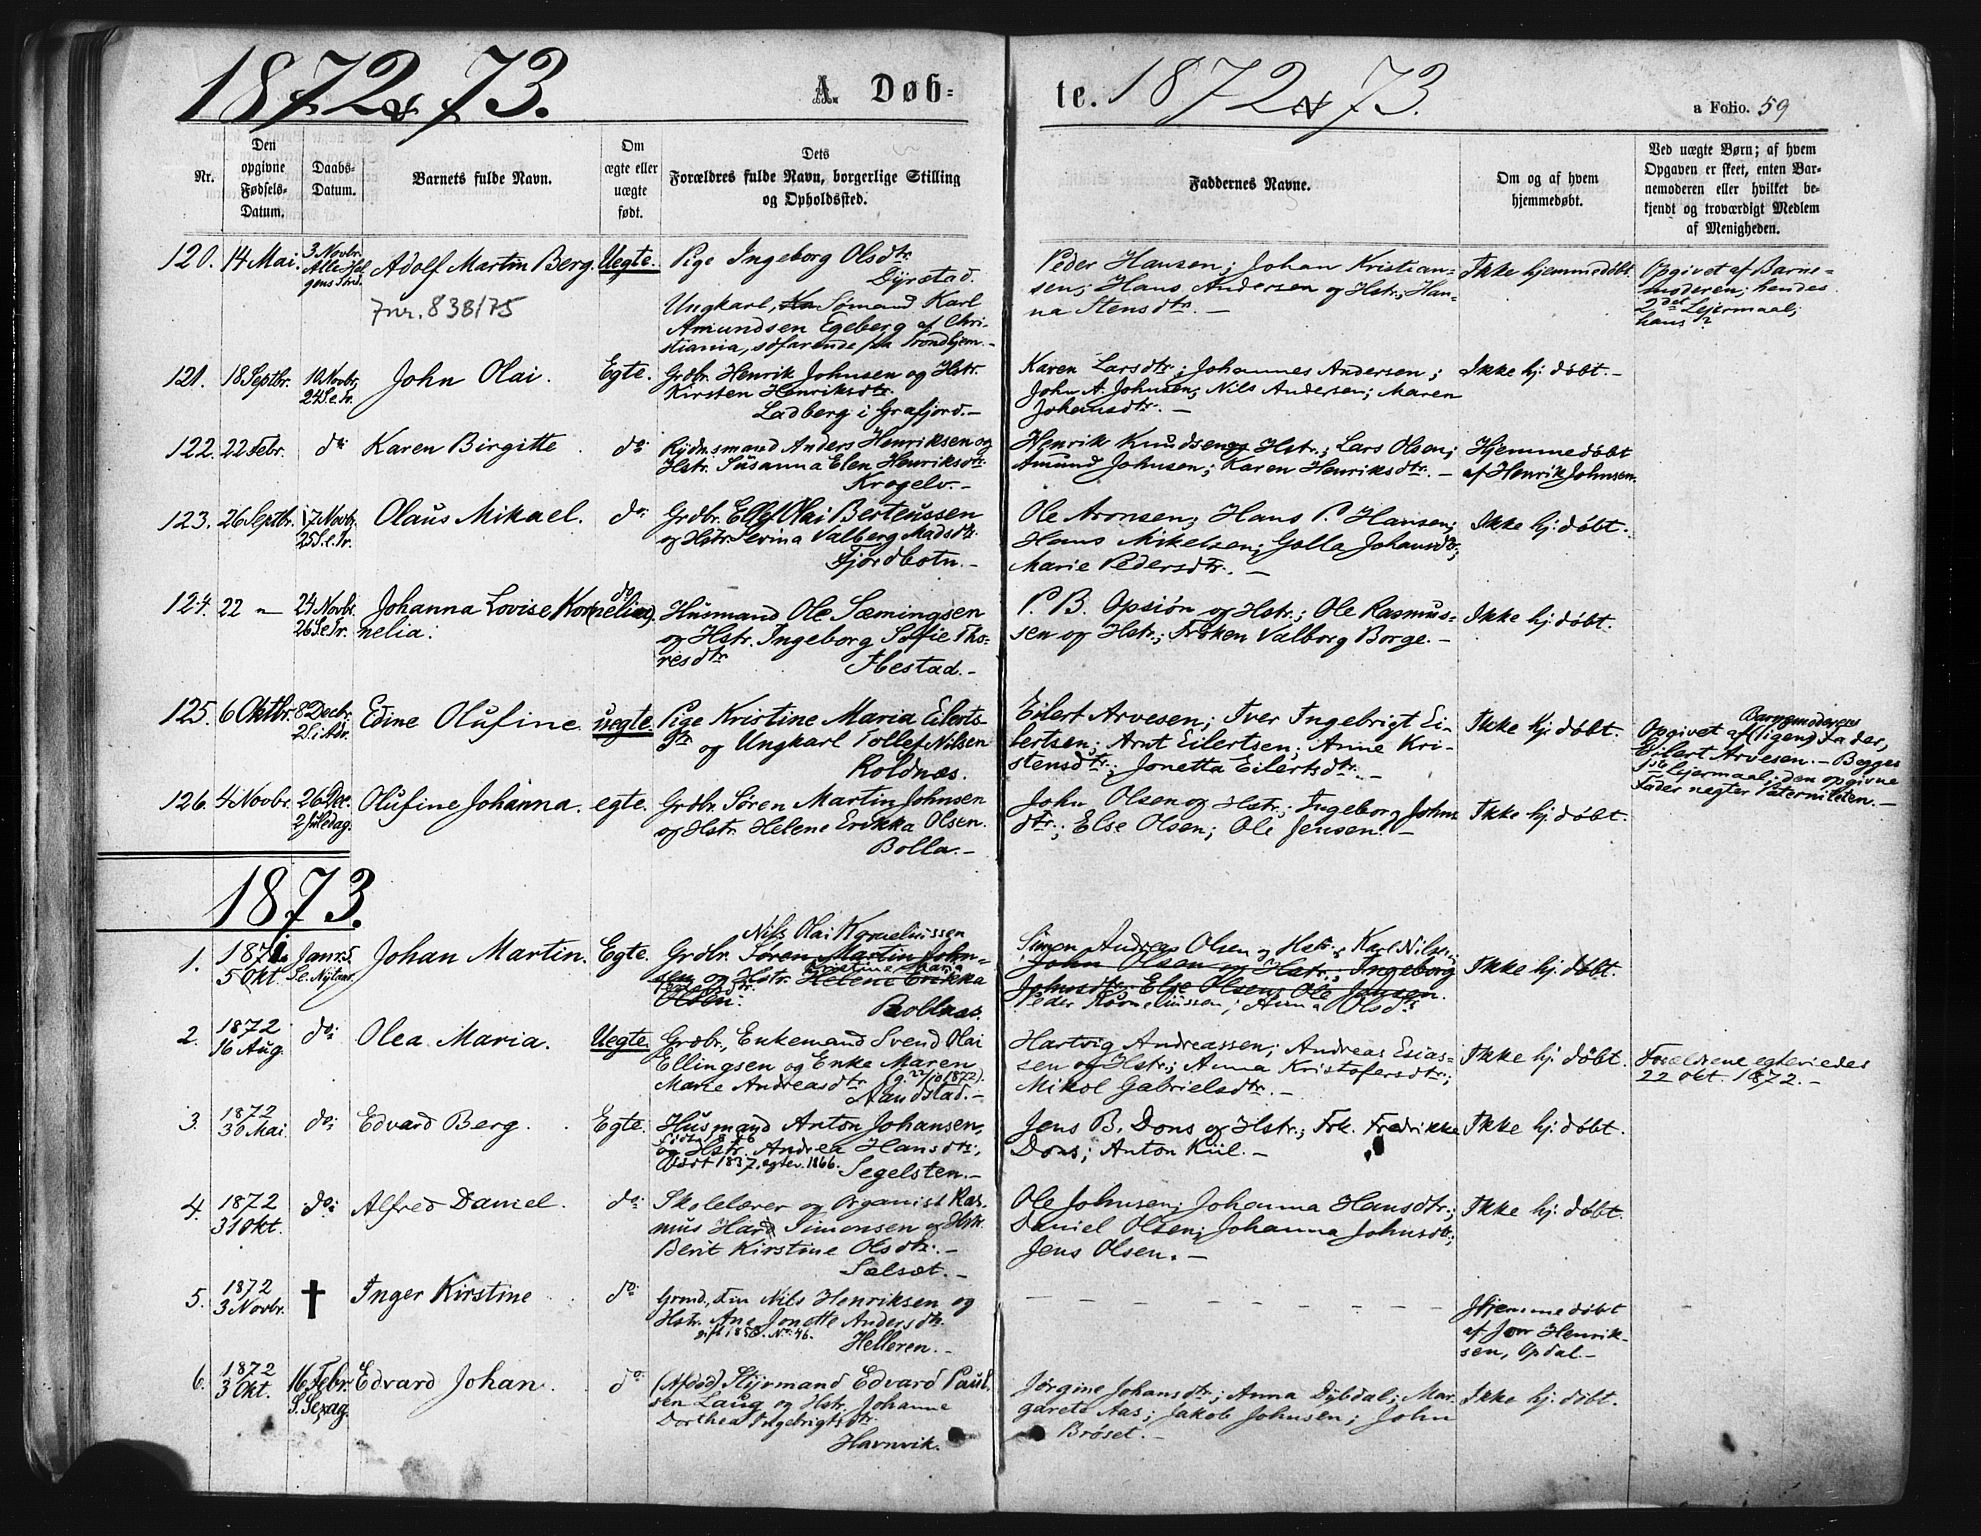 1872 & 73.
A Døb-
te. 1872 & 73.
a Folio. 59
Nr.
Den opgivne Fødsels-Datum.
Daabs-Datum.
Barnets fulde Navn.
Om ægte eller uægte født.
Dets Forældres fulde Navn, borgerlige Stilling og Opholdssted.
Faddernes Navne.
Om og af hvem hjemmedøbt.
Ved uægte Børn; af hvem Opgaven er skeet, enten Barnemoderen eller hvilket bekjendt og troværdigt Medlem af Menigheden.
120. 14 Mai. 3 Novbr. Alle Helgens Sønd. Adolf Martin Berg. Uegte. Pige Ingeborg Olsdtr.
Dyrstad.
fnr. 838/75
Ungkarl, Sømand Karl
Amundsen Egeberg af Chri-
stiania, søfarende fra Trondhjem.-
Peder Hansen; Johan Kristian-
sen; Hans Andersen og Hstr.; Han-
na Stensdtr. -
Ikke hjemmedøbt.
Opgivet af Barne-
moderen; hendes
2det Lejermaal;
hans ?
121. 18 Septbr. 10 Novbr. 24 S. e. Tr. John Olai. Egte. Grdbr. Henrik Johnsen og Hstr.
Kirsten Henriksdtr.
Ladberg i Grafjord.-
Karen Larsdtr.; Johannes Andersen;
John A. Johnsen; Nils Andersen; Maren
Johansdtr. -
Ikke hj. døbt.-
122. 22 Febr. do: Karen Birgitte. do: Rydnsmand Anders Henriksen og
Hstr. Susanna Elen Henriksdtr.
Krogelv.-
Henrik Knudsen og Hstr.; Lars Olsen;
Amund Johnsen; Karen Henriksdtr. -
Hjemmedøbt
af Henrik Johnsen.
123. 26 Septbr. 17 Novbr. 25 S. e. Tr. Olaus Mikael. do: Grdbr. Ellef Olai Berteussen
og Hstr. Serina Valberg Madsdtr.
Fjordbotn.-
Ole Aronsen; Hans P. Hansen;
Hans Mikelsen; Golla Johansdtr;
Marie Pedersdtr. -
Ikke hj. døbt.
124. 22 " 24 Novbr. 26 S. e. Tr. Johanna Lovise Kor(nelia) do:
nelia.
Husmand Ole Sæmingsen
og Hstr. Ingeborg Sofie Tho-
resdtr
Hestad.-
P. B. Opsiøn og Hstr.; Ole Rasmus-
sen og Hstr.; Frøken Valborg Borge.-
Ikke hj. døbt.
125. 6 Oktbr. 8 Decbr. 2 S. i Adv. Edine Olufine. uegte. Pige Kristine Maria Eilerts-
dtr og Ungkarl Tollef Nilsen
Roldnæs.
Eilert Arvesen; Iver Ingebrigt Ei-
lertsen; Arnt Eilertsen; Anne Kri-
stensdtr.; Jonetta Eilertsdtr. -
Ikke hj. døbt.
Barnemoderens
Opgivet af (ligens) Fader,
Eilert Arvesen.- Begges
1ste Lejermaal; den opgivne
Fader negter Paterniteten.-
126. 4 Novbr. 26 Dec. 2 Juledag. Olufine Johanna. egte. Grdbr Søren Martin Johnsen
og Hstr. Helene Erikka Olsen.
Bolla.-
John Olsen og Hstr.; Ingeborg Johns
dtr.; Else Olsen; Ole Jensen. -
Ikke hj. døbt.
1873.
1. 1872 5 Okt. Janr. 5 S. e. Nytaar. Johan Martin. Egte.
Nils Olai Kornelinssen
Grdbr. Søren Martin John-
sen og Hstr. Helene Erikka
Olsen.
Rollnæs.
Simon Andreas Olsen og Hstr.; Karl Nilsen;
John Olsen og Hstr.; Ingeborg
Johnsdtr; Else Olsen; Ole Jensen.
Peder Korneliussen; Anna Olsdtr.
Ikke hj. døbt.
2. 1872 16 Aug. do: Olea Maria. Uegte. Grdbr., Enkemand Svend Olai
Ellingsen og Enke Maren
Marie Andreasdtr. (g. 22/10 1872).
Nandstad.-
Hartvig Andreassen; Andreas Esias-
sen og Hstr.; Anna Kristofersdtr.;
Mikol Gabrielsdtr. -
Ikke hj. døbt.
Forældrene egteviedes
22 Okt. 1872. -
3. 1872 30 Mai do: Edvard Berg. Egte. Husmand Anton Johansen,
født 1846
og Hstr. Andrea Hansdtr;
født 1837, egtev. 1866.
Segelsten.-
Jens B. Dons og Hstr.; Frk. Fredrikke
Dons; Anton Kiil. -
Ikke hj. døbt.
4. 1872 31 Okt. do: Alfred Daniel. do: Skolelærer og Organist Ras-
mus Hard Simonsen og Hstr.
Berit Kirstine Olsdtr. -
Salsæt.-
Ole Johnsen; Johanna Hansdtr.;
Daniel Olsen; Johanna Johnsdtr;
Jens Olsen. -
Ikke hj. døbt.
5. 1872 3 Novbr. † Inger Kirstine do: Grmd. Nils Henriksen og
Hstr. Ane Jonette Andersdtr.
gift 1858. No. 46.
Helleren.-
- - - - - - - -
Hjemmedøbt
af Jon Henrik-
sen, Opdal.-
6. 1872 3 Okt. 16 Febr. S. Sexag. Edvard Johan. do: (Afdød) Styrmand Edvard Paul-
sen Laug og Hstr. Johanne
Dorthea Ingebrigtsdtr.
Havnvik.
Jørgine Johansdtr.; Anna Dybdal; Mar-
garete Aas; Jakob Johnsen; John
Brøset. -
Ikke hj. døbt.